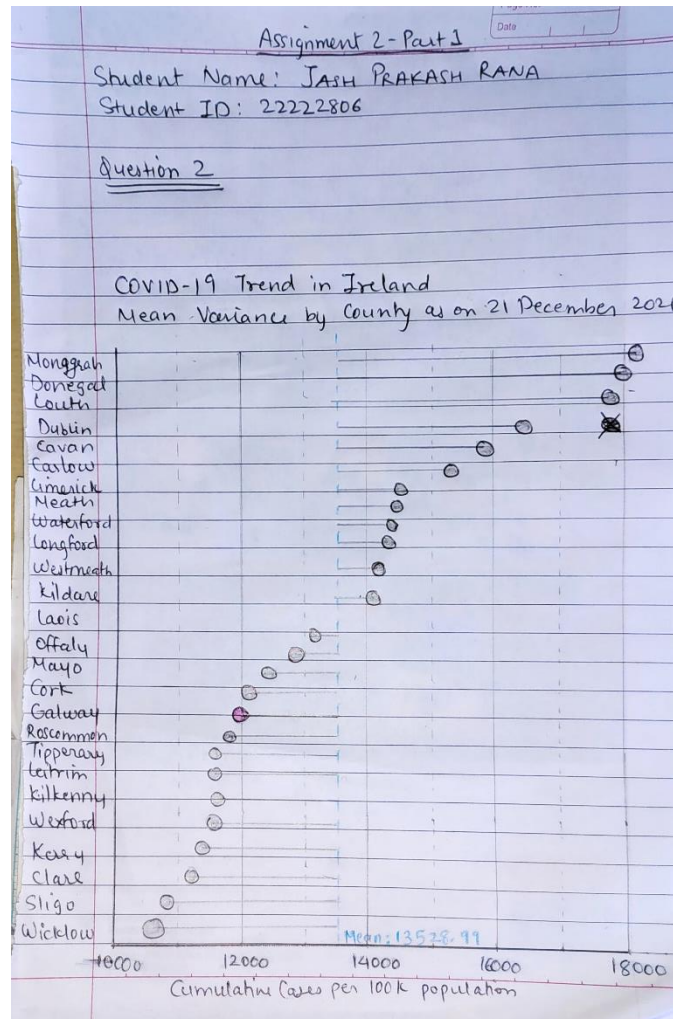 Date
Assignment 2 - Part 1
Student Name: JASH PRAKASH RANA
Student ID: 22222806
Question 2
COVID-19 Trend in Ireland
Mean Variance by County as on 21 December 2021
Monggrah
Donegal
Louth
Dublin
Cavan
Carlow
Limerick
Meath
Waterford
Longford
Westmeath
Kildare
Laois
Offaly
Mayo
Cork
Galway
Roscommon
Tipperary
Leitrim
Kilkenny
Wexford
Kerry
Clare
Sligo
Wicklow
Mean: 13528.99
10000 12000 14000 16000 18000
Cumulative Cases per 100k population